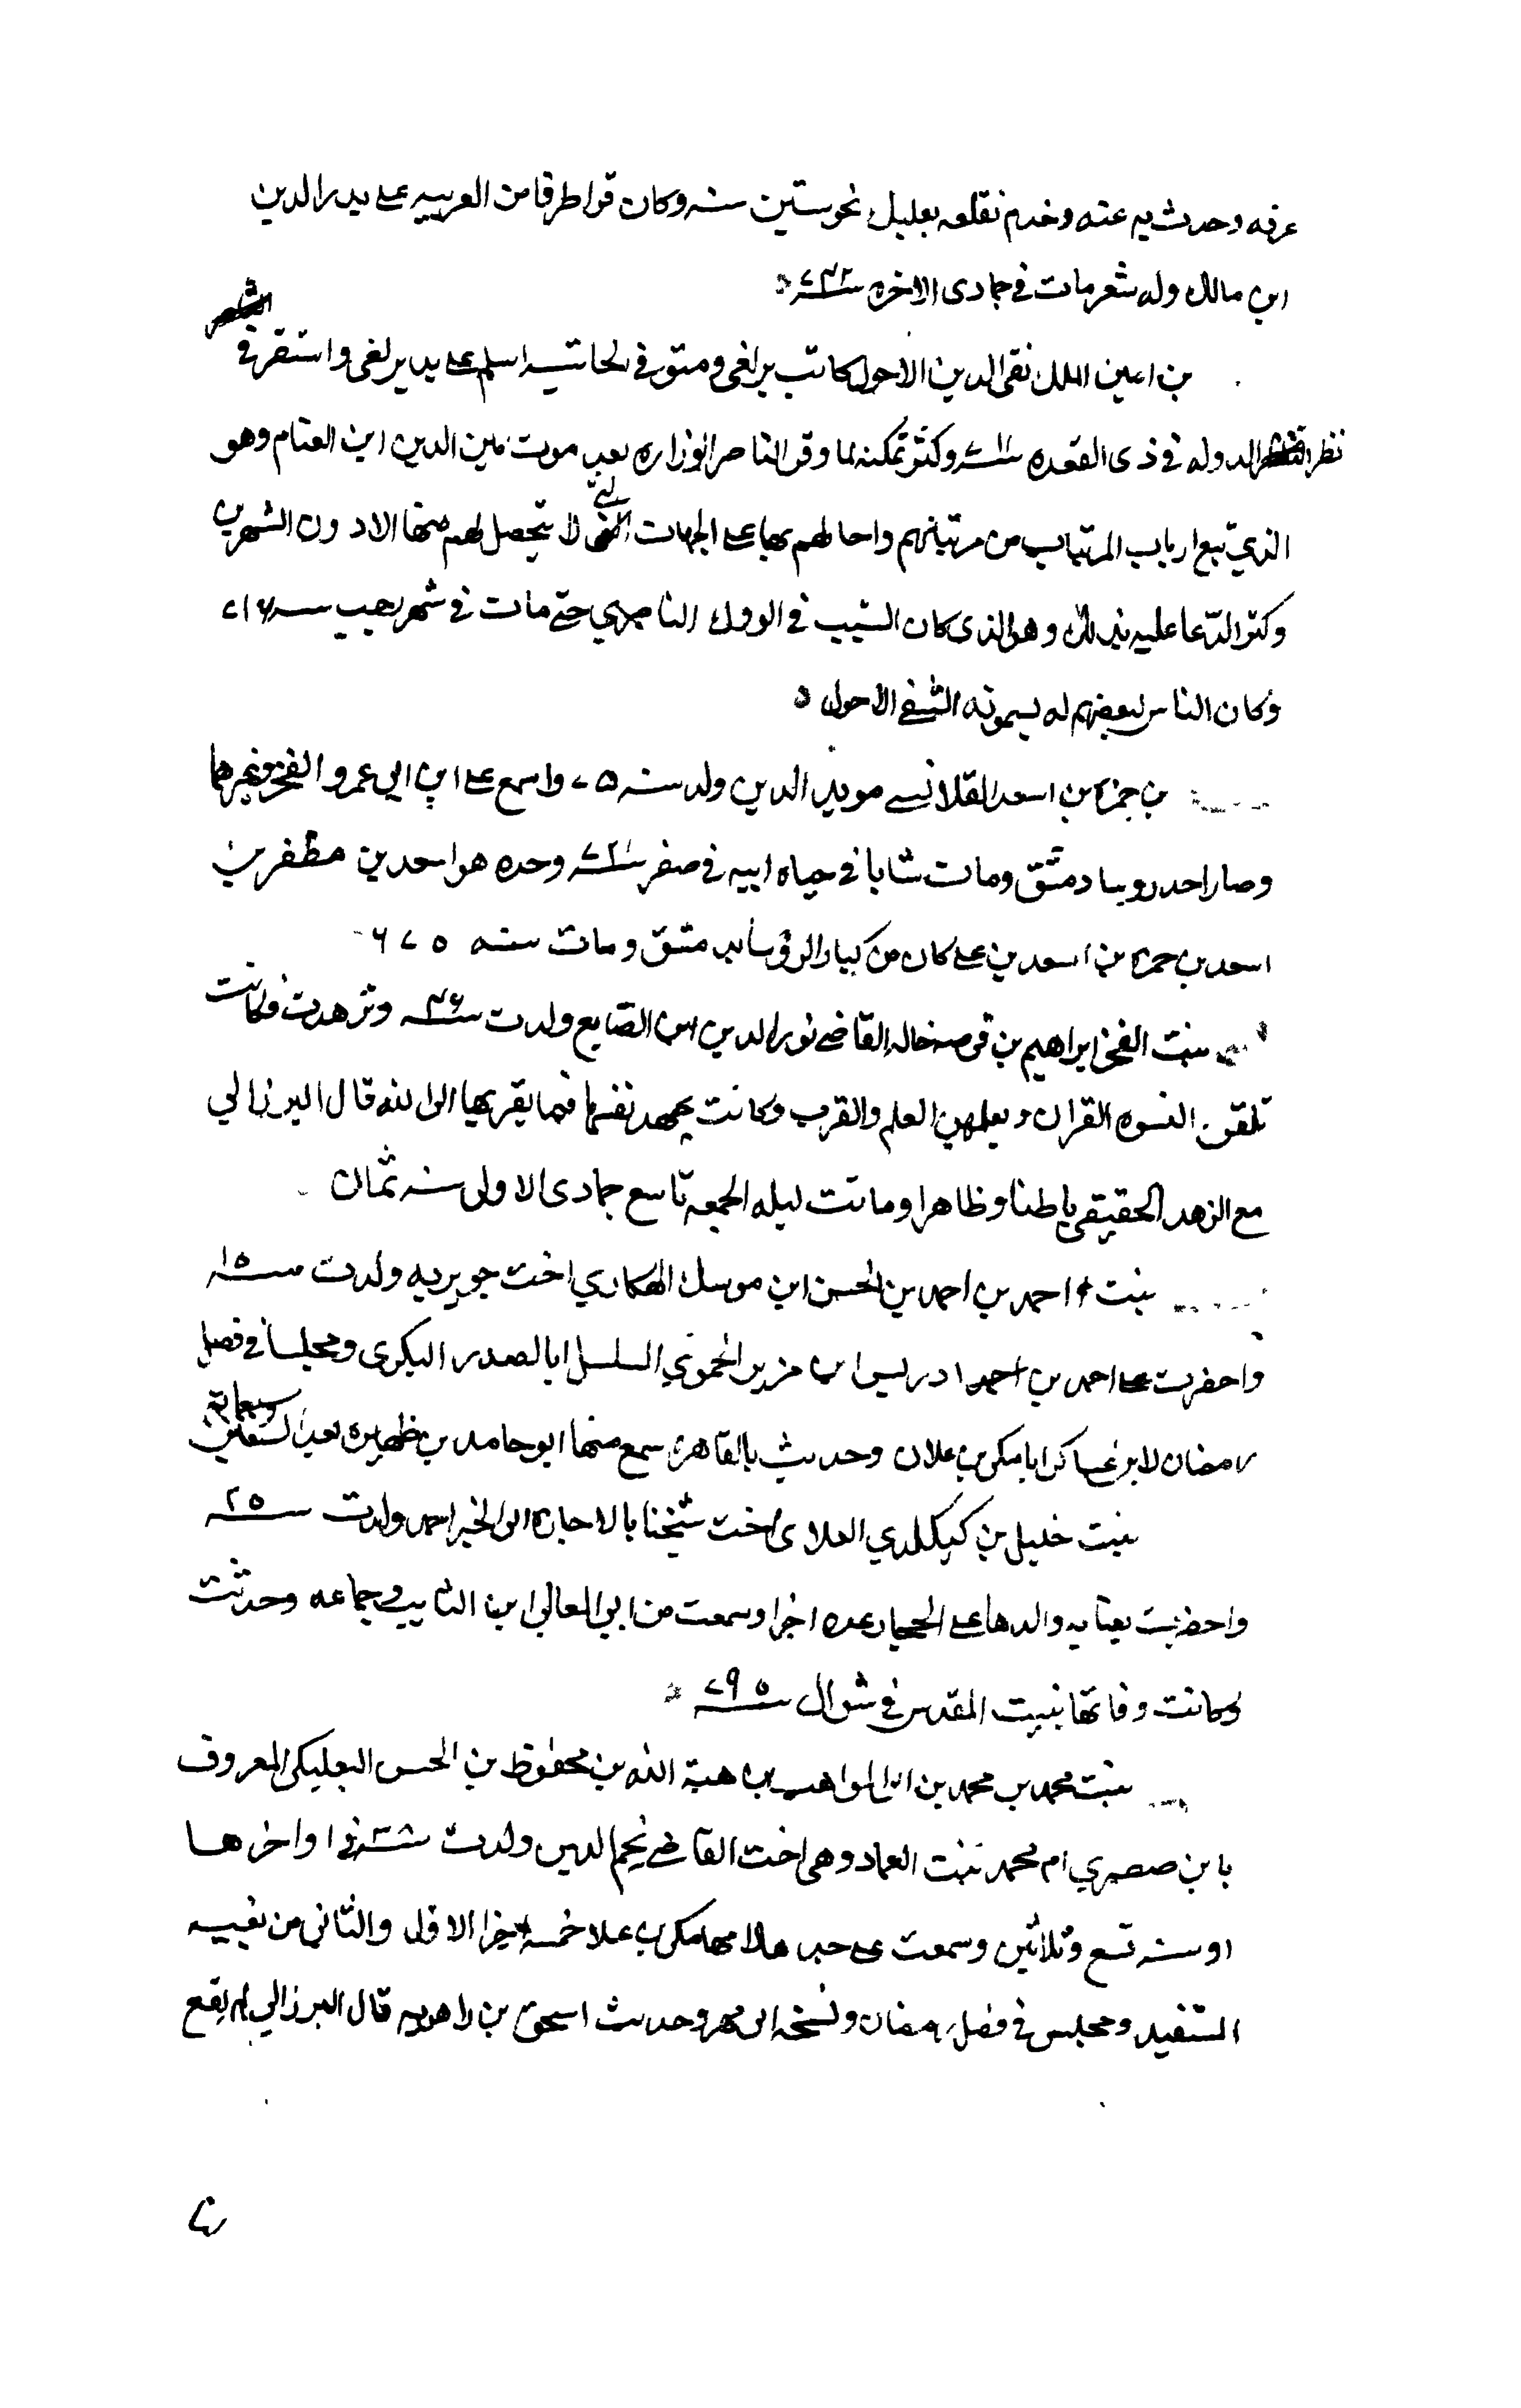 عرفه وحدث به عنه وخدم نقلعه بعلبك نحو ستين سنه وكان قرا طرفا من العربيه على بدر الدين
ابن مالك وله شعر مات في جمادى الاخره سنة ٧٣٢
بن امين الملك تقى الدين الاحول كاتب برلغى ومتوفي الحاشيه اسلم على يد برلغى واستقر في
نظر الدوله في ذى القعده سنة وكثر تمكنه لما وفر الناصر الوزاره بعد موت امين الدين ابن الغنام وهو
الذي تتبع ارباب المرتبات من مرتباتهم واحالهم بها على الجهات التي لا يتحصل لهم منها الا دون الشهرين
وكثر الدعا عليه بذلك وهو الذى كان السبب في الروك الناصري حتى مات في شهر رجب سنة ٧١٦
وكان الناس لبغضهم له يسمونه الشقي الاحول
بن حمزه بن اسعد القلانسي مويد الدين ولد سنه ٧٥ واسمع على ابن ابي عمر والفخر وغيرهما
وصار احد روسا دمشق ومات شابا في حياه ابيه في صفر سنة وجده هو اسعد بن مظفر بن
اسعد بن حمزه بن اسعد بن على كان من كبار الروسا بدمشق ومات سنه ٦٧٥
بنت الفخر ابراهيم بن قرصه خاله القاضي نور الدين ابن الصايغ ولدت سنة ٣٦ وتزهدت وكانت
تلقن النسوه القران وتعلمهن العلم والقرب وكانت تجهد نفسها فيما يقربها الى الله قال البرزالي
مع الزهد الحقيقي باطنا وظاهرا وماتت ليله الجمعه تاسع جمادى الاولى سنه ثمان
بنت احمد بن احمد بن الحسن ابن موسك الهكاري اخت جويريه ولدت سنة ١٥
واحضرت على احمد بن احمد ادريس ابن مزيز الحموي المسلسل ابا الصدر البكرى ومجلسا في فضل
رمضان لابن عساكر ابا مكى بن علان وحدثت بالقاهره سمع منها ابو حامد بن ظهيره بعد السبعين وسبعمايه
بنت خليل بن كيكلدي العلاى اخت شيخنا بالاجازه ابى الخير احمد ولدت سنة ٢٥
واحضرت بعنايه والدها على الحجار عده اجزا وسمعت من ابي المعالي ابن وجماعه وحدثت
وكانت وفاتها ببيت المقدس في شوال سنة ٧٩٥
بنت محمد بن محمد بن ابى المواهب بن هبة الله بن محفوظ بن الحسن البعلبكى المعروف
بابن صصري ام محمد بنت العماد وهى اخت القاضي نجم الدين ولدت سنة ٣٨ في اواخرها
او سنه تسع وثلاثين وسمعت على جد هلامها مكى بن علا خمسه اجزا الاول والثانى من بغيه
المستفيد ومجلس في فضل رمضان ونسخه ابى مسهر وحديث اسحق بن راهويه قال البرزالي لم يقع